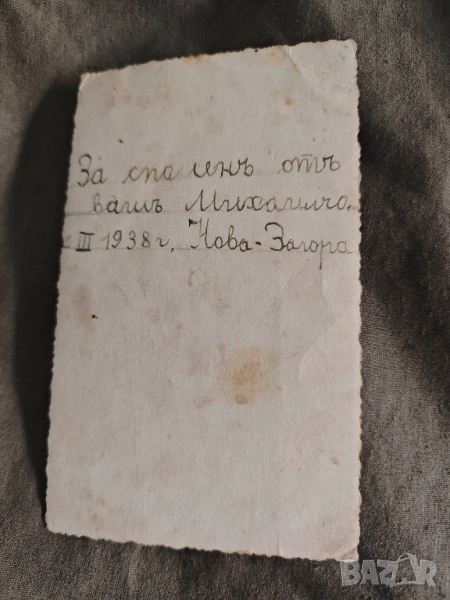 За спаменъ отъ
вашъ Михалчо.
III 1938 г. Нова-Загора
BAZAR